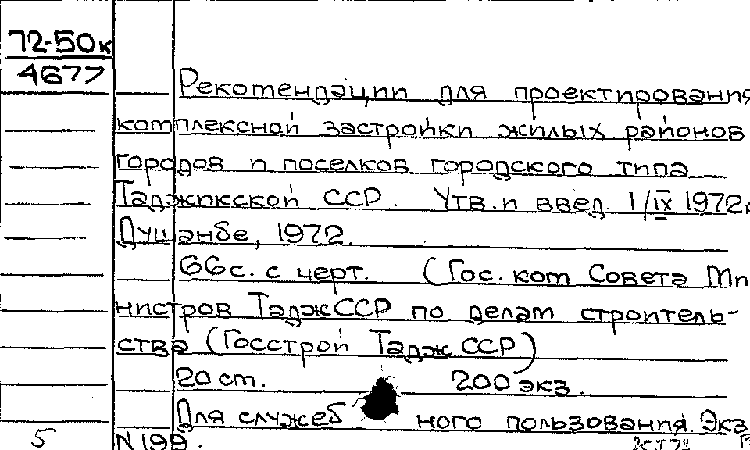 72-50к
4677
Рекомендации для проектирования
комплексной застройки жилых районов
городов и поселков городского типа
Таджикской ССР. Утв. и введ. 1/IX 1972г.
Душанбе, 1972.
66 с. с черт. (Гос. ком Совета Ми
нистров Тадж ССР по делам строитель-
ства (Госстрой Тадж ССР)
20 см. 200 экз.
Для служеб ного пользования. Экз
5 N 199.